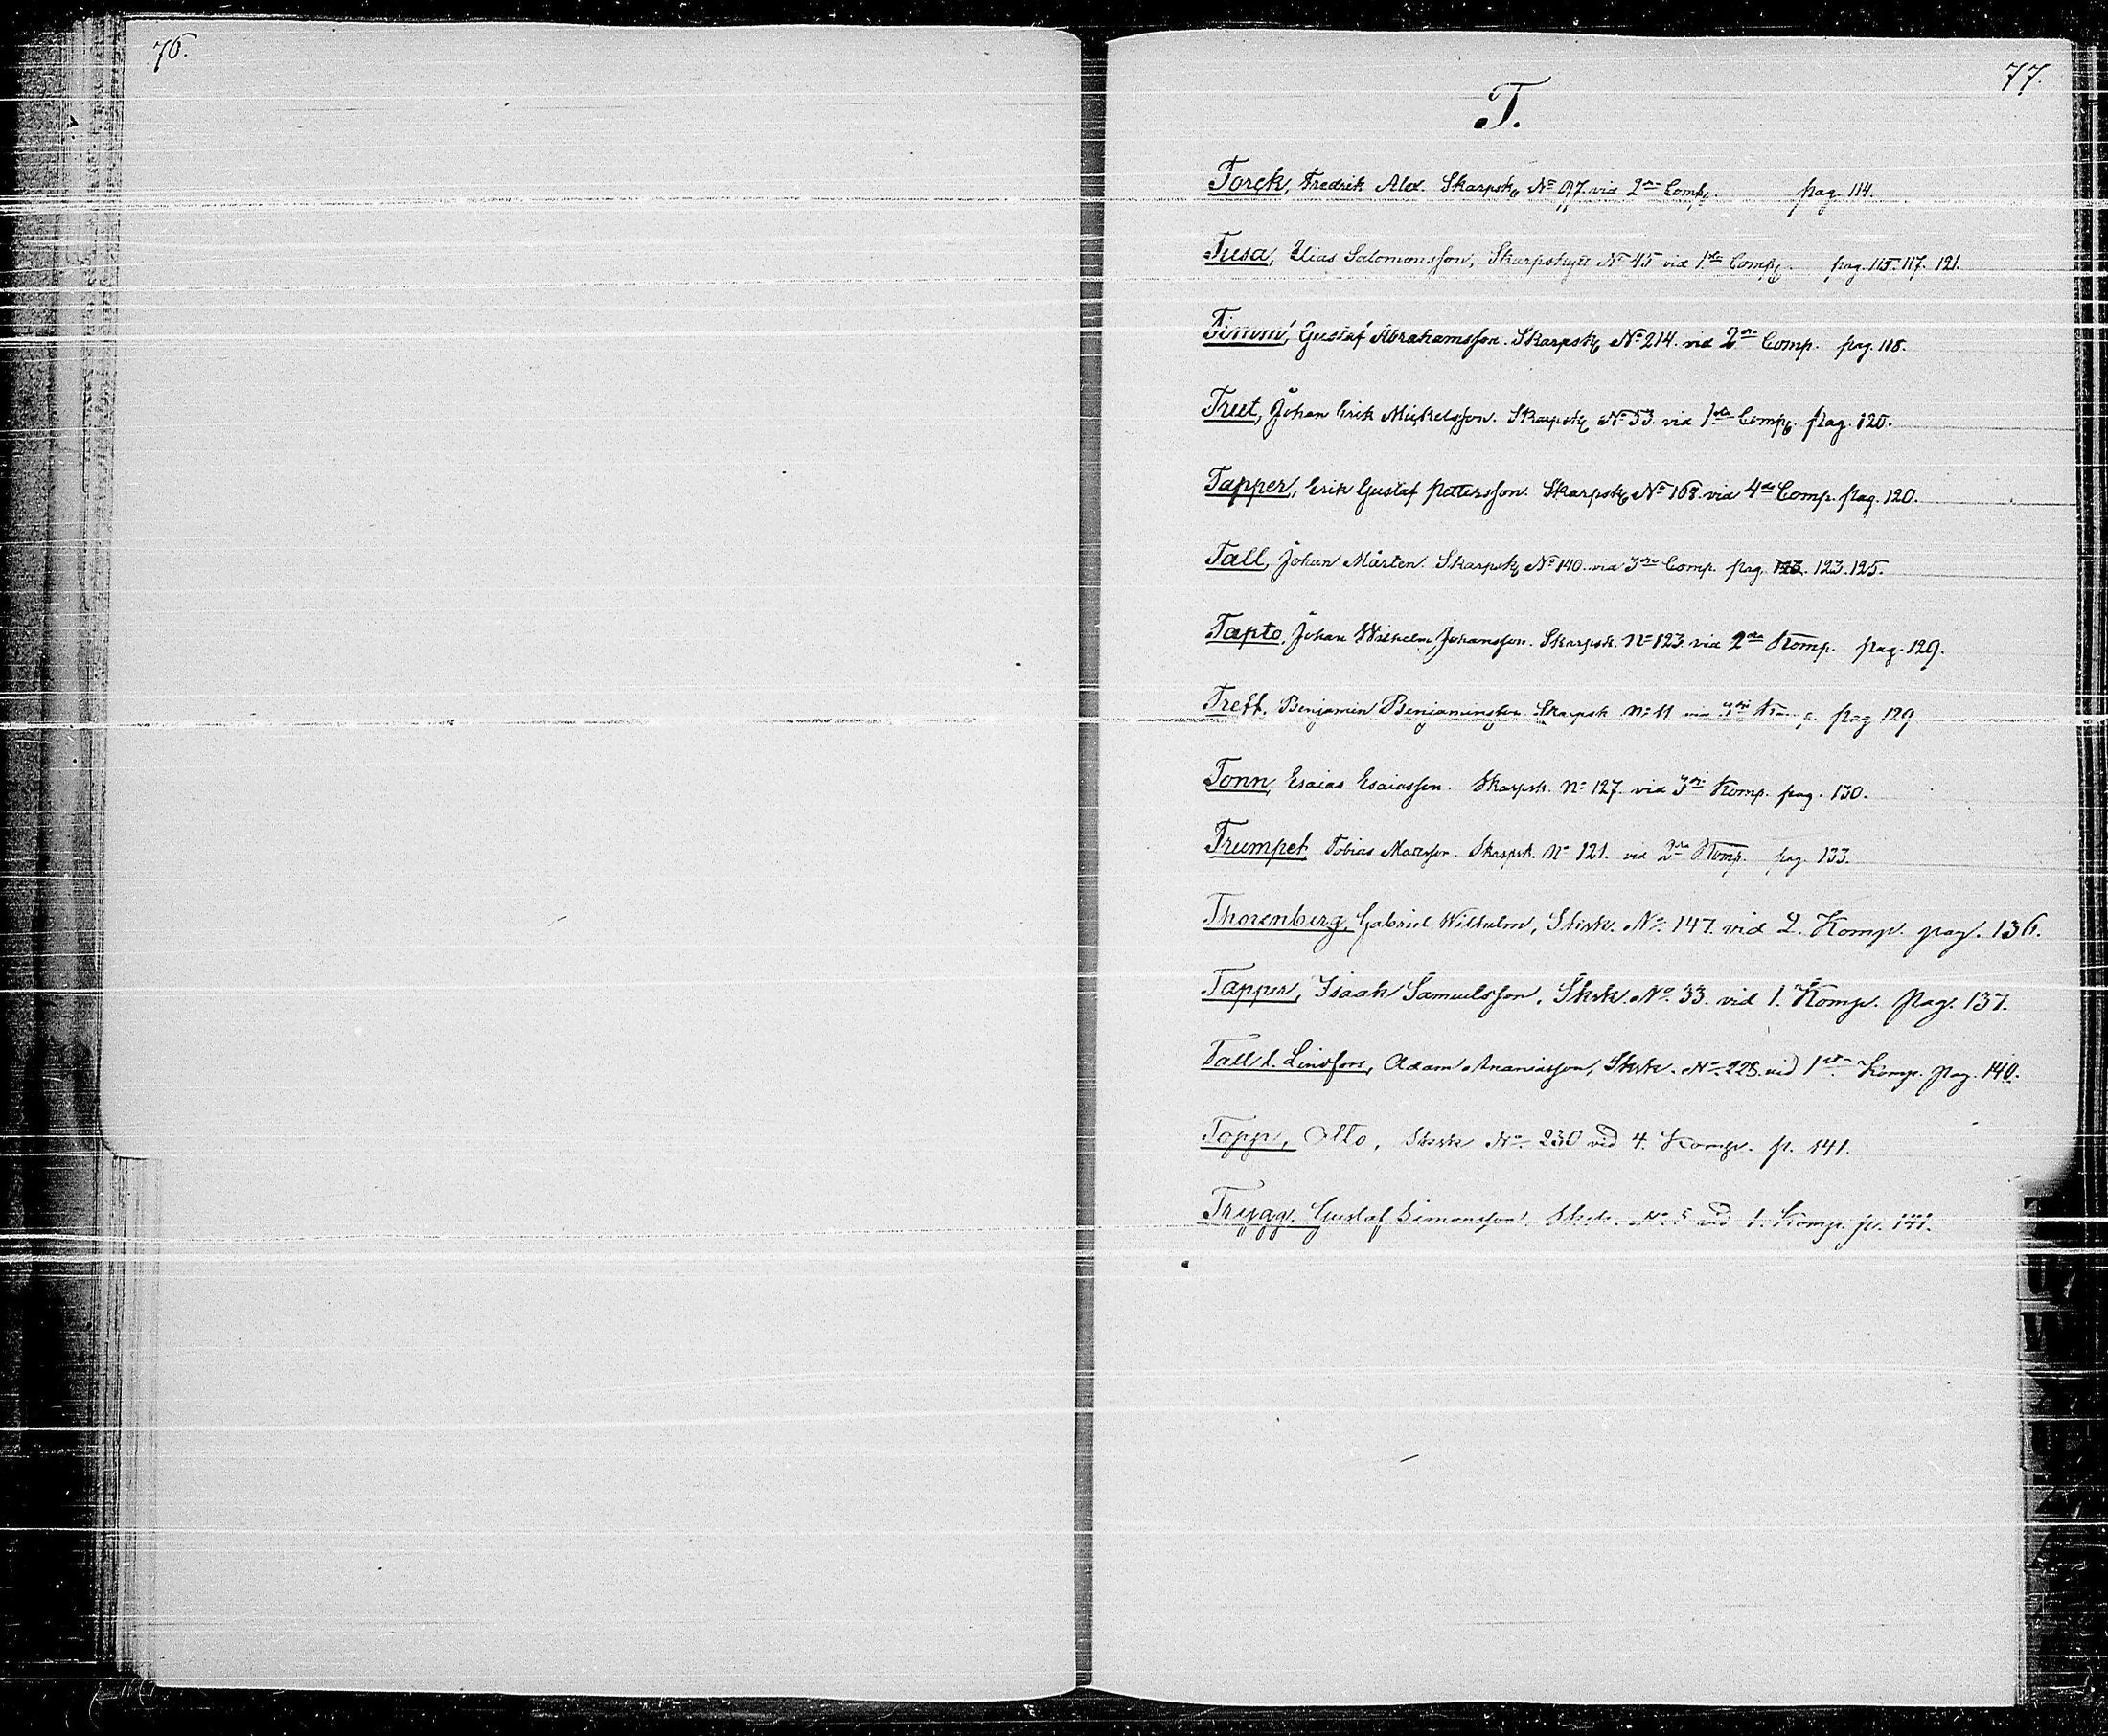 76.
77.
T.
Torck, Fredrik Alex. Skarpsk. No 97. vid 2ra Comp. pag. 114.
Tusa, Elias Salomonsson, Skarpskytt No 45 vid 1sta Comp. pag. 115. 117. 121.
Timm, Gustaf Abrahamsson. Skarpsk. No 214. vid 2ra Comp. pag. 118.
Treet, Johan Erik Mickelsson. Skarpsk. No 53. vid 1sta Comp. pag. 120.
Tapper, Erik Gustaf Pettersson. Skarpsk. No 168. vid 4de Comp. pag. 120.
Tall, Johan Mårten. Skarpsk. No 140. vid 3die Comp. pag. 123. 125.
Tapto, Johan Wilhelm Johansson. Skarpsk. No 123. vid 2dra Komp. pag. 129.
Treff. Benjamin Benjaminsson Skarpsk No 11 vid 3die pag 129
Tonn, Esaias Esaiasson. Skarpsk. No 127. vid 3die Komp. pag. 130.
Trumpet, Tobias Matsson. Skarpsk. No 121. vid 2ra Komp. pag. 133.
Thorenberg, Gabriel Wilhelm, Skrsk. No. 147. vid 2. Komp. pag. 136.
Tapper, Isaak Samuelsson, Skrsk. No. 33. vid 1. Komp. Pag. 137.
Tall l. Lindfors, Adam Ananiasson, Skrsk. No. 228. vid 1sta Komp. pag. 140.
Topp, Otto, Skrsk No. 230 vid 4. Komp. p. 141.
Trygg. Gustaf Simonsson, Skrsk. No. 5 vid 1. Komp. p. 141.